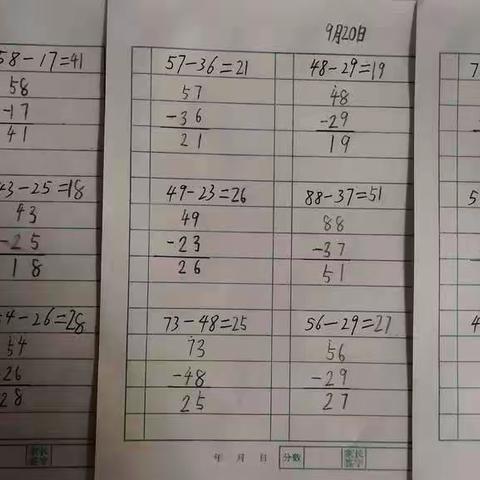 58-17=41
58
-17
41
43-25=18
43
-25
18
54-26=28
54
26
28
9月20日
57-36=21
57
-36
21
48-29=19
48
-29
19
49-23=26
49
-23
26
88-37=51
88
-37
51
73-48=25
73
-48
25
56-29=27
56
-29
27
年 月 日 分数 家长签字
家长签字
7
5
4